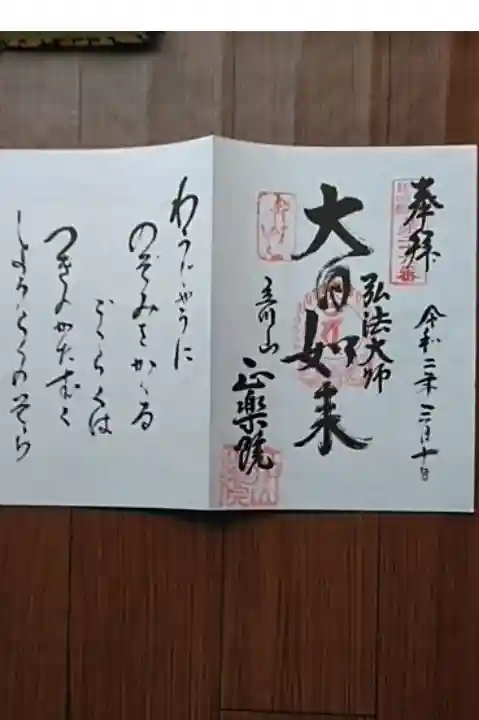 奉拝
令和二年三月十日
弘法大師
大日如来
立川山
正楽院
わうじやうに
のぞみをかくる
ごくらくは
つきのかたむく
しようらくのそら